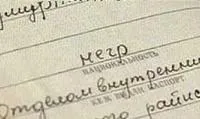 негр
НАЦИОНАЛЬНОСТЬ
Отделом внутренни
КЕМ ВЫДАН ПАСПОРТ
райис